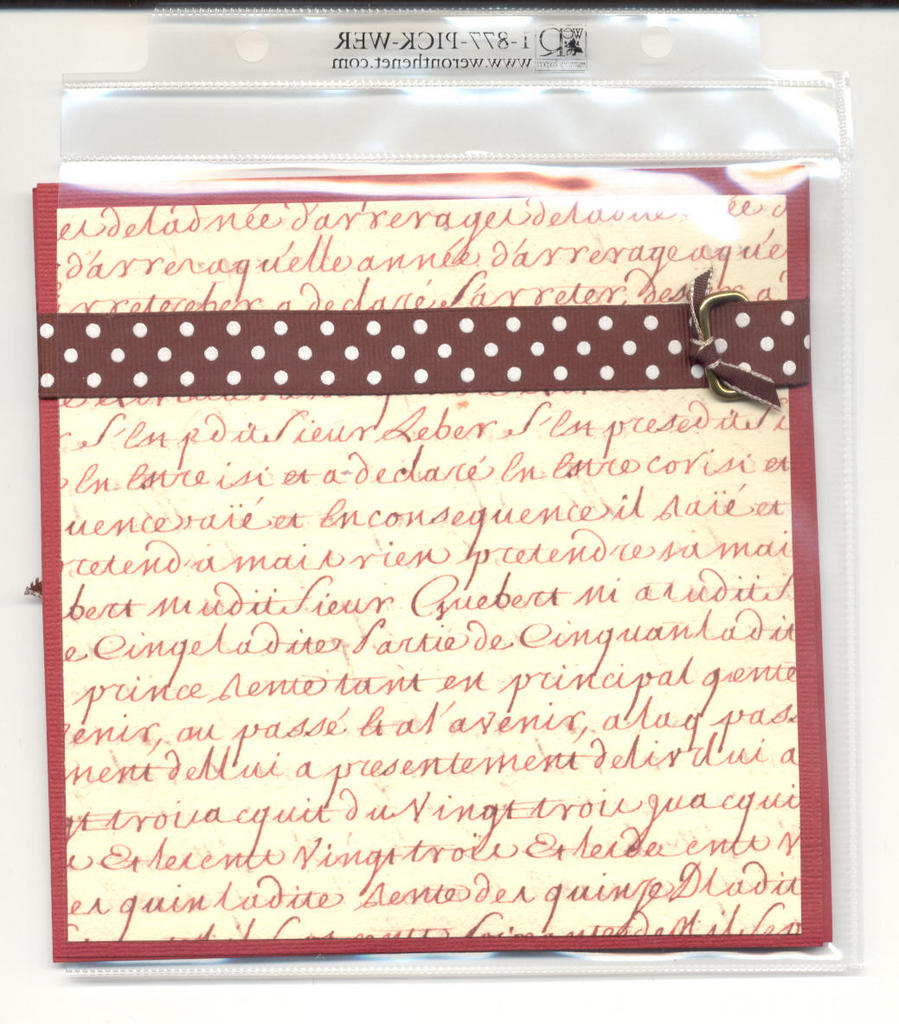 1-877-PICK-WER
www.weronthenet.com
d'arrerages
d'arreraqu'elle année d'arrerage aqu'e
a declaré S'arreter,
S'En pdit Sieur Leber S'En presédit Si
En Entre isi et a-declaré En Entre corisi et
uence raïé et En consequence il raïé et
retend a mais rien pretendre ra mai
bert ni udit Sieur Quebert ni a rudit S
e Cinqeladite Partie de Cinquanladit
prince rente tant en principal q rente
enir, au passé Et a l'avenir, a la q pass
ment dellui a presentement delir dlui a
gt troisacquit du Vingt trois qua cqui
Et les cent Vingt trois Et les de cent V
es quinladite rente des quinze Dladit